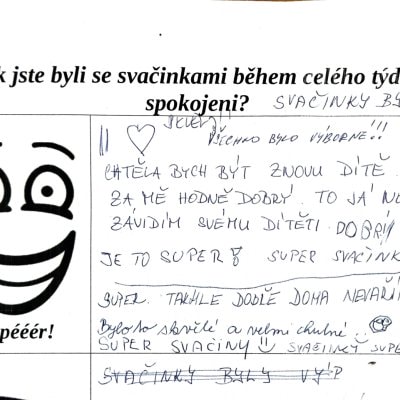 k jste byli se svačinkami během celého týd
spokojeni?
SVAČINKY BY
VŠECHNO BYLO VÝBORNÉ!!
CHTĚLA BYCH BÝT ZNOVU DÍTĚ
ZA MĚ HODNĚ DOBRÝ. TO JÁ NE
ZÁVIDÍM SVÉMU DÍTĚTI. DOBRÝ
JE TO SUPER! SUPER SVAČINK
SUPER. TAKHLE DOBŘE DOMA NEVAŘÍ
Bylo to skvělé a velmi chutné..
SUPER SVAČINY!! SVAČINKY SUPE
SVAČINKY BYLY VÝP
pééér!